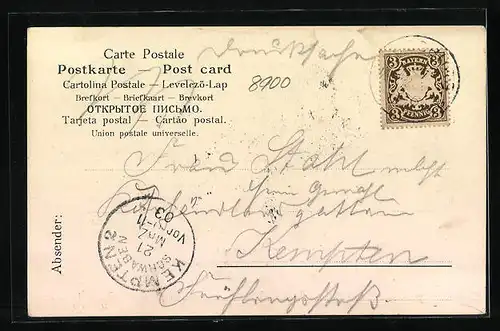 Carte Postale
Drucksache
Postkarte — Post card
Cartolina Postale — Levelező-Lap
Brefkort — Briefkaart — Brevkort
ОТКРЫТОЕ ПИСЬМО.
Tarjeta postal — Cartão postal.
Union postale universelle.
8900
3 BAYERN 3
3 PFENNIG 3
Frau Stahl
Kempten
Frühlingstraße
Absender:
KEMPTEN 2
SCHWABEN
21
MRZ
03